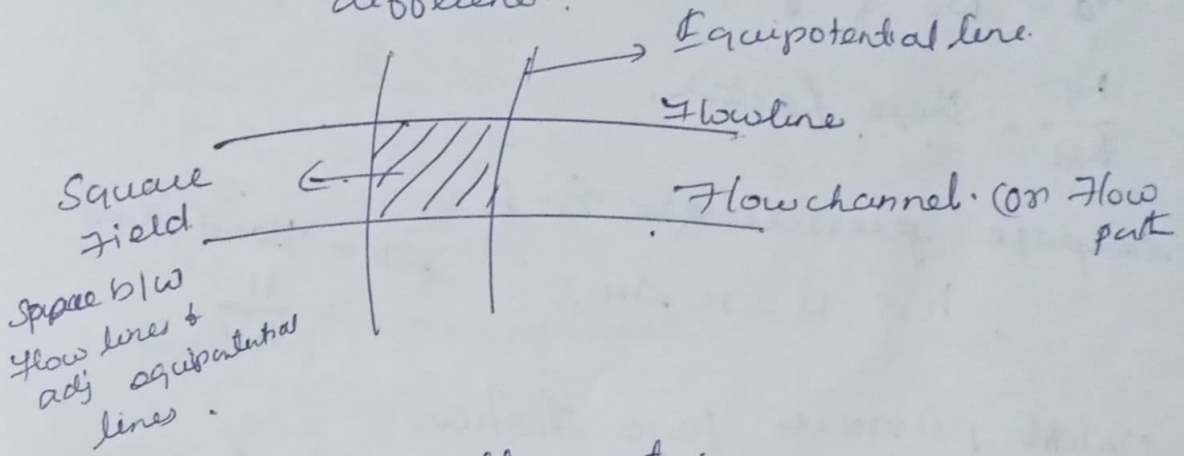 Equipotential line.
Flowline
Square
Field
Flowchannel. (or Flow
path
Space b/w
Flow lines &
adj equipotential
lines.